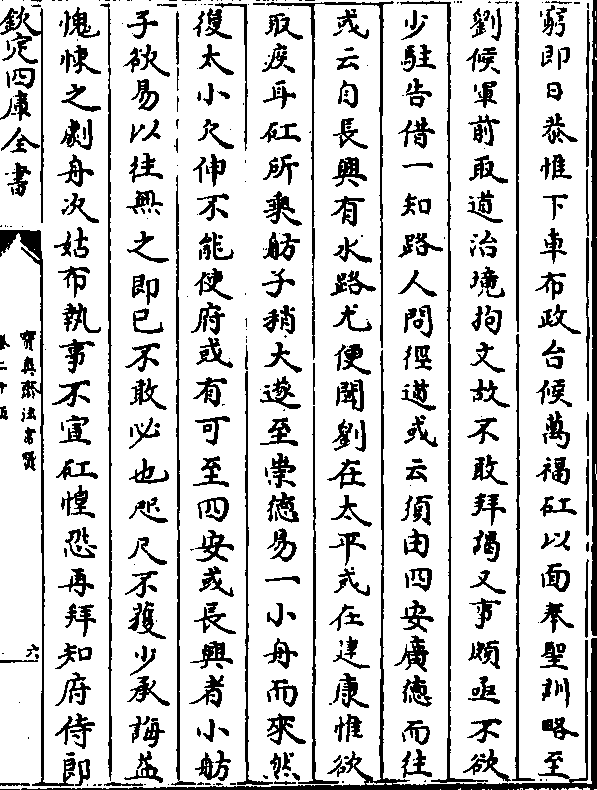 窮即日恭惟下車布政台候萬福矼以面奉聖訓略至
劉候軍前取道治境拘文故不敢拜謁又事頗亟不欲
少駐告借一知路人問徑道或云須由四安廣德而往
或云自長興有水路尤便聞劉在太平或在建康惟欲
取疾耳矼所乘舫子稍大遂至崇德易一小舟而來然
復太小欠伸不能使府或有可至四安或長興者小舫
子欲易以往無之即已不敢必也咫尺不獲少承誨益
愧悚之劇舟次姑布執事不宣矼惶恐再拜知府侍郎
欽定四庫全書
寶真齋法書贊
卷二十五
六